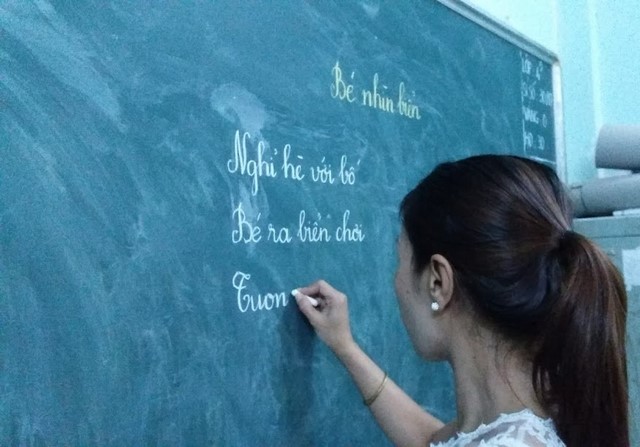 Bé nhìn biển
Nghỉ hè với bố
Bé ra biển chơi
Tuon
LỚP